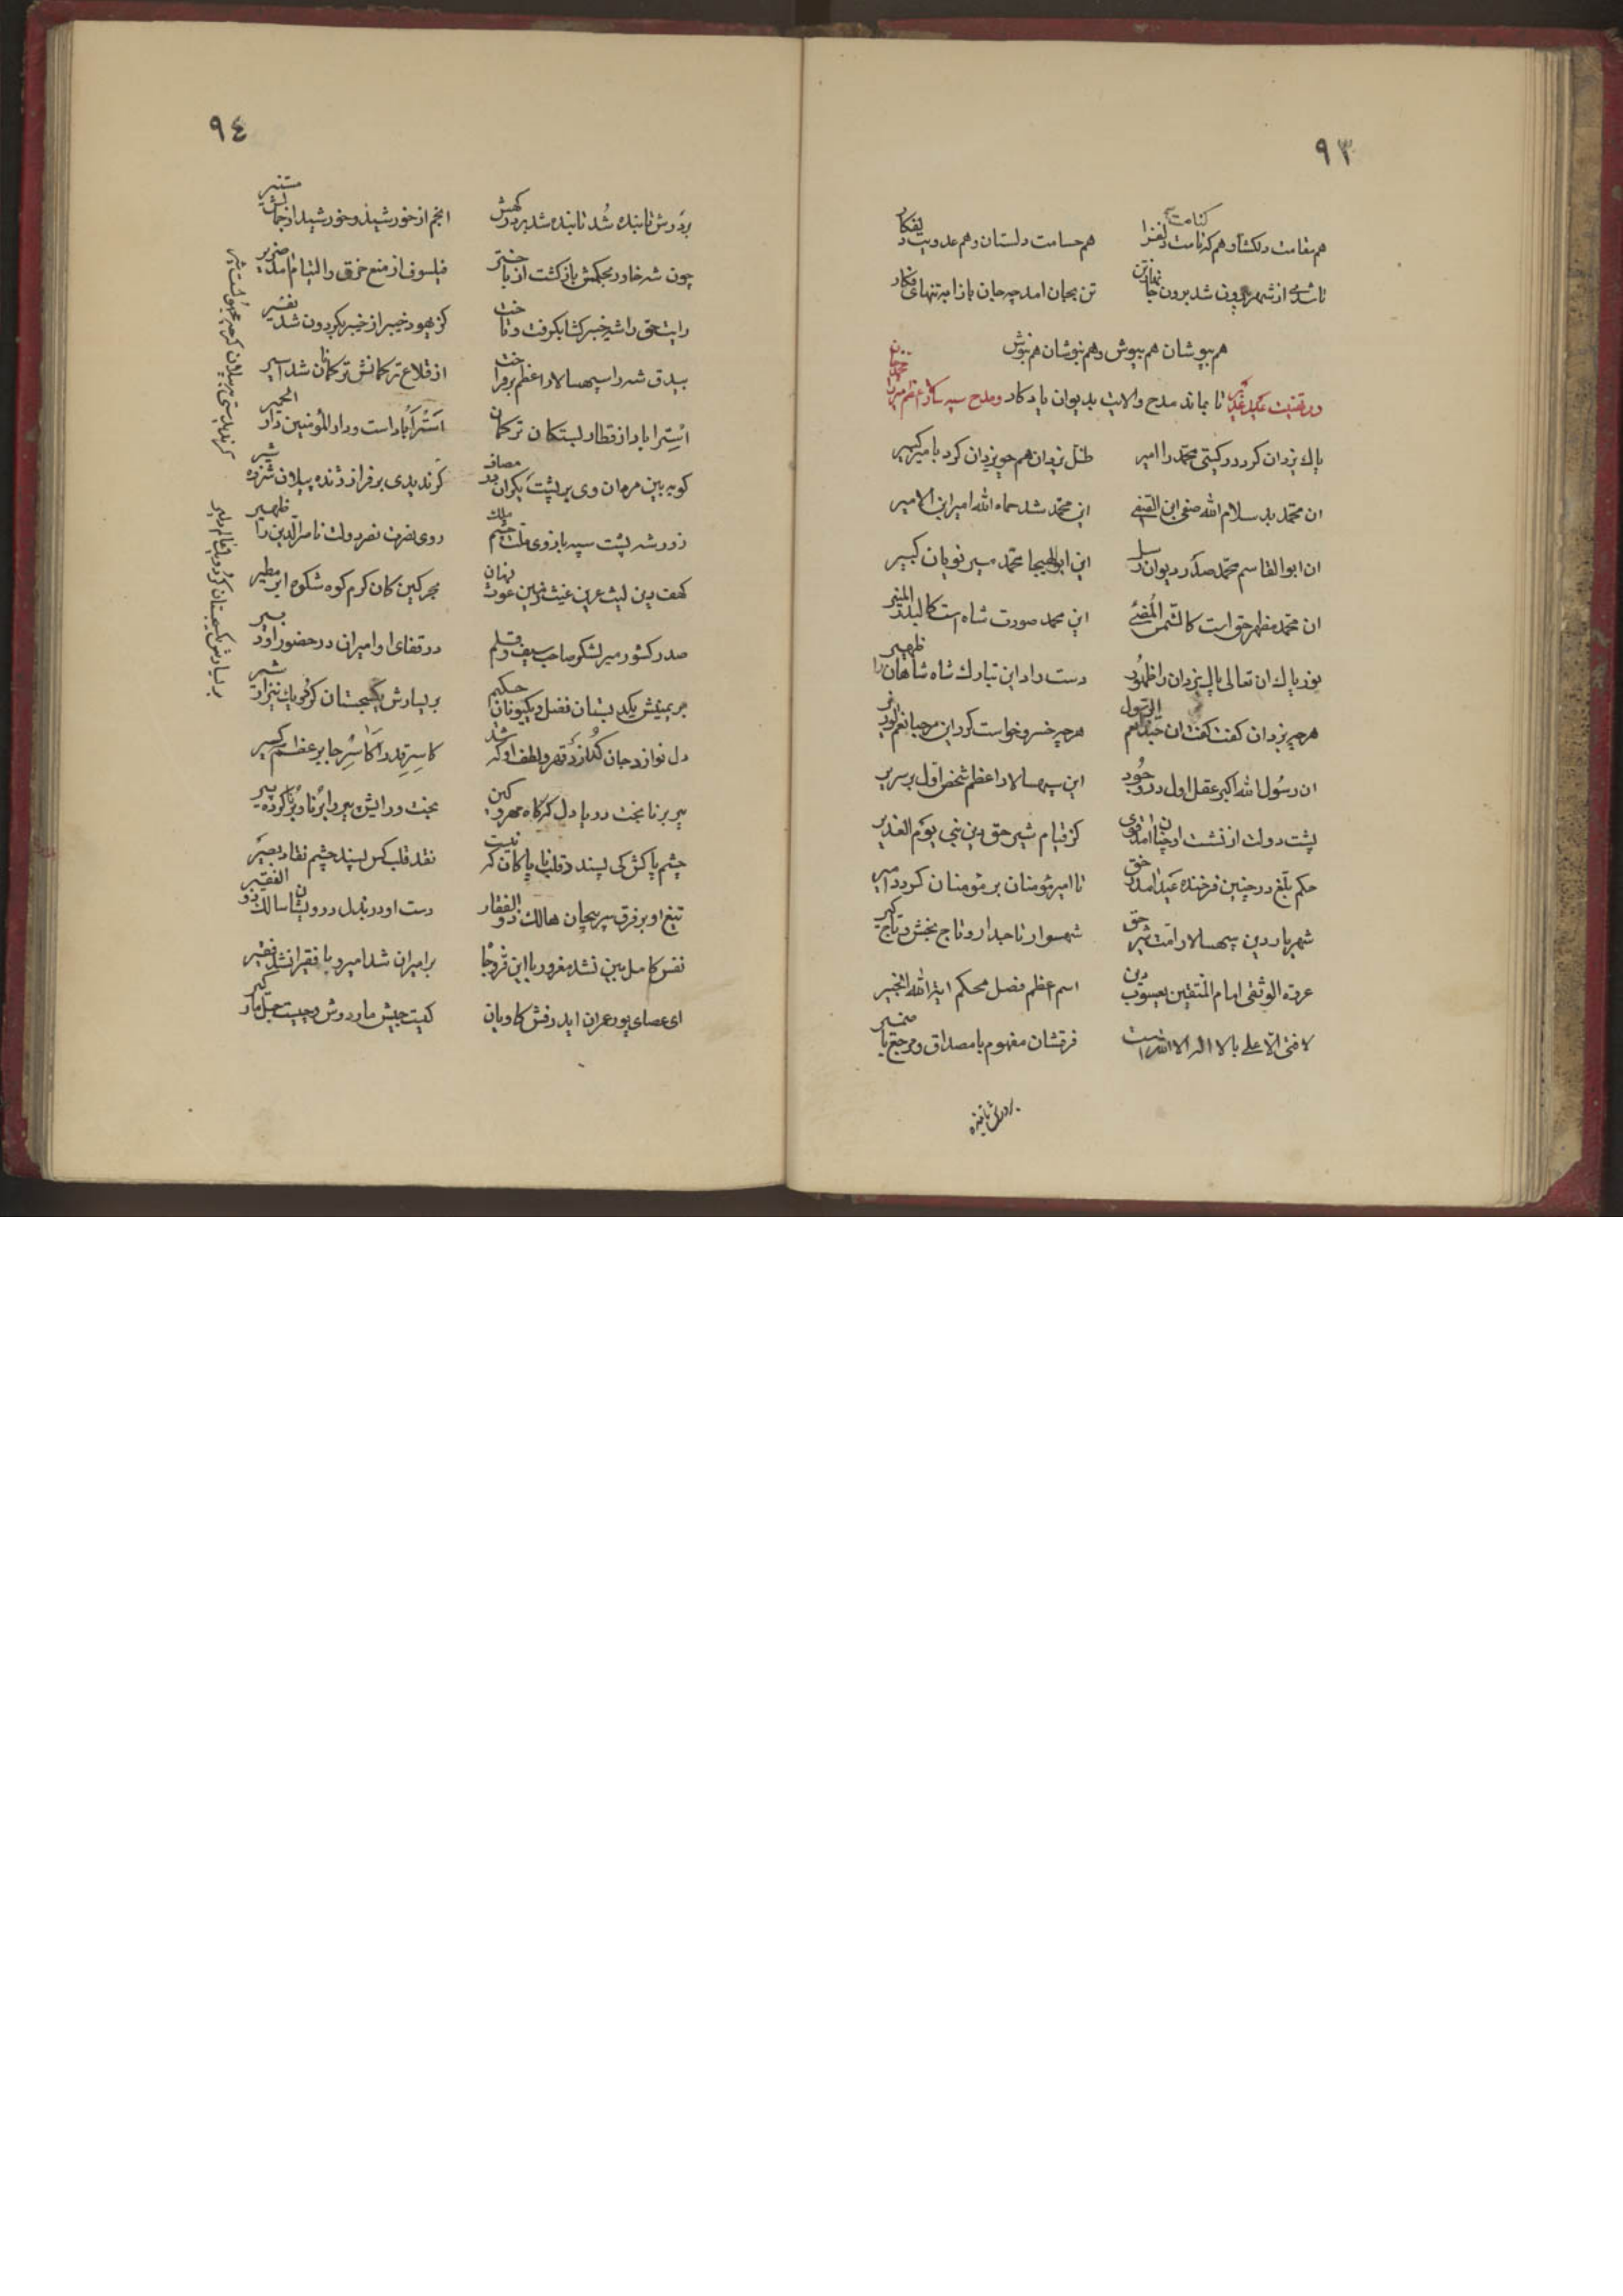 ۹۳
هم مقامت دلکشا و هم کنامت دلفزا هم حسامت دلستان و هم عدویت دلفکار
تا شدی از شهر بیرون شد برون جانها ز تن تن بیجان امد چه جان باز امد تنهای فکار
هم بپوشان هم بپوش و هم بنوشان هم بنوش
در تهنیت عید غدیر تا بماند مدح والایت بدیوان یادکار و مدح سپه سالار اعظم میرزا محمد خان
پاك یزدان کرد در کیتی محمد را امیر ظل یزدان هم چو یزدان کرد با میر کبیر
ان محمد بد سلام الله صفی ابن الصفی این محمد شد حماه الله امیر ابن الامیر
ان ابوالقاسم محمد صدر دیوان رسل این ابوالهیجا محمد میر نویان کبیر
ان محمد مظهر حق است کالشمس المضئ این محمد صورت شاه است کالبدر المنیر
نور پاك ان تعالی پاك یزدان را ظهور دست راد این تبارك شاه شاهان را ظهیر
هرچه یزدان کفت کفت ان حبذا نعم الرسول هرچه خسرو خواست کرد این مرحبا نعم الوزیر
ان رسول الله اکبر عقل اول در وجود این سپهسالار اعظم شخص اول بر سریر
پشت دولت از نشست او چنان امد قوی کز قیام شیر حق دین نبی یوم الغدیر
حکم بلغ در چنین فرخنده عید امد ز حق تا امیر مؤمنان بر مؤمنان کردد امیر
شهریار دین سپهسالار امت شیر حق شهسوار تاجدار و تاج بخش و تاج کیر
عروة الوثقی امام المتقین یعسوب دین اسم اعظم فصل محکم ایة الله الخبیر
لا فتی الا علی با لا اله الا الله است فرقشان مفهوم با مصداق و مرجع با ضمیر
بردرش تابنده
۹٤
بردرش تابنده شد تابنده شد بر درکهش انجم از خورشید و خورشید از جمالش مستنیر
چون شه خاور بحکمش باز کشت از باختر فیلسوف از منع خرق و التیام امد ضریر
رایت حق را شه خیبر کشا بکرفت و تاخت کز یهود خیبر از خیبر بکردون شد نفیر
بیدق شه را سپهسالار اعظم برفراخت از قلاع ترکمانش ترکمانان شد اسیر
استراباد از قطار بستکان ترکمان استراباد است و دار المؤمنین دار الحمیر
کو به بین مرمان وی بر پشت یکران در مصاف کر ندیدی بر فراز ژنده پیلان شرزه شیر
زور شه پشت سپه بازوی ملت چشم ملك روی نصرت نصر دولت ناصرالدین را ظهیر
کهف دین لیث عرین غیث زمین غوث زمان بحر کین کان کرم کوه شکوه ابر مطیر
صدر کشور میر لشکر صاحب سیف و قلم در قفای او امیران در حضور او دبیر
بر یمینش یکدبستان فضل و یکیونان حکیم بر یسارش یکسجستان کرد و یك نیزار شیر
دل نواز و جان کداز از قهر و لطف او که شد کاسر قدر اکاسر جابر عظم کسیر
پیر برنا بخت دریا دل که کاه مهر و کین بخت و رایش پیر را برنا و برنا کرده پیر
چشم پاکش کی پسندد قلب ناپاکان که نیست نقد قلب کس پسند چشم نقاد بصیر
تیغ او بر فرق سرپیچان هالك ذوالفقار دست او در بذل درویشان سالك ذو الفقیر
نفس کامل بین نشد مغرور با این فر و جاه بر امیران شد امیر و با فقیرانشد فقیر
ای عصای پور عمران اید رفش کاویان کیت جیش ماردوش و چیست حبل مارکیر
کر ندیدستی به پیلان کرچه
بر یسارش یکسجستان کرد و یا